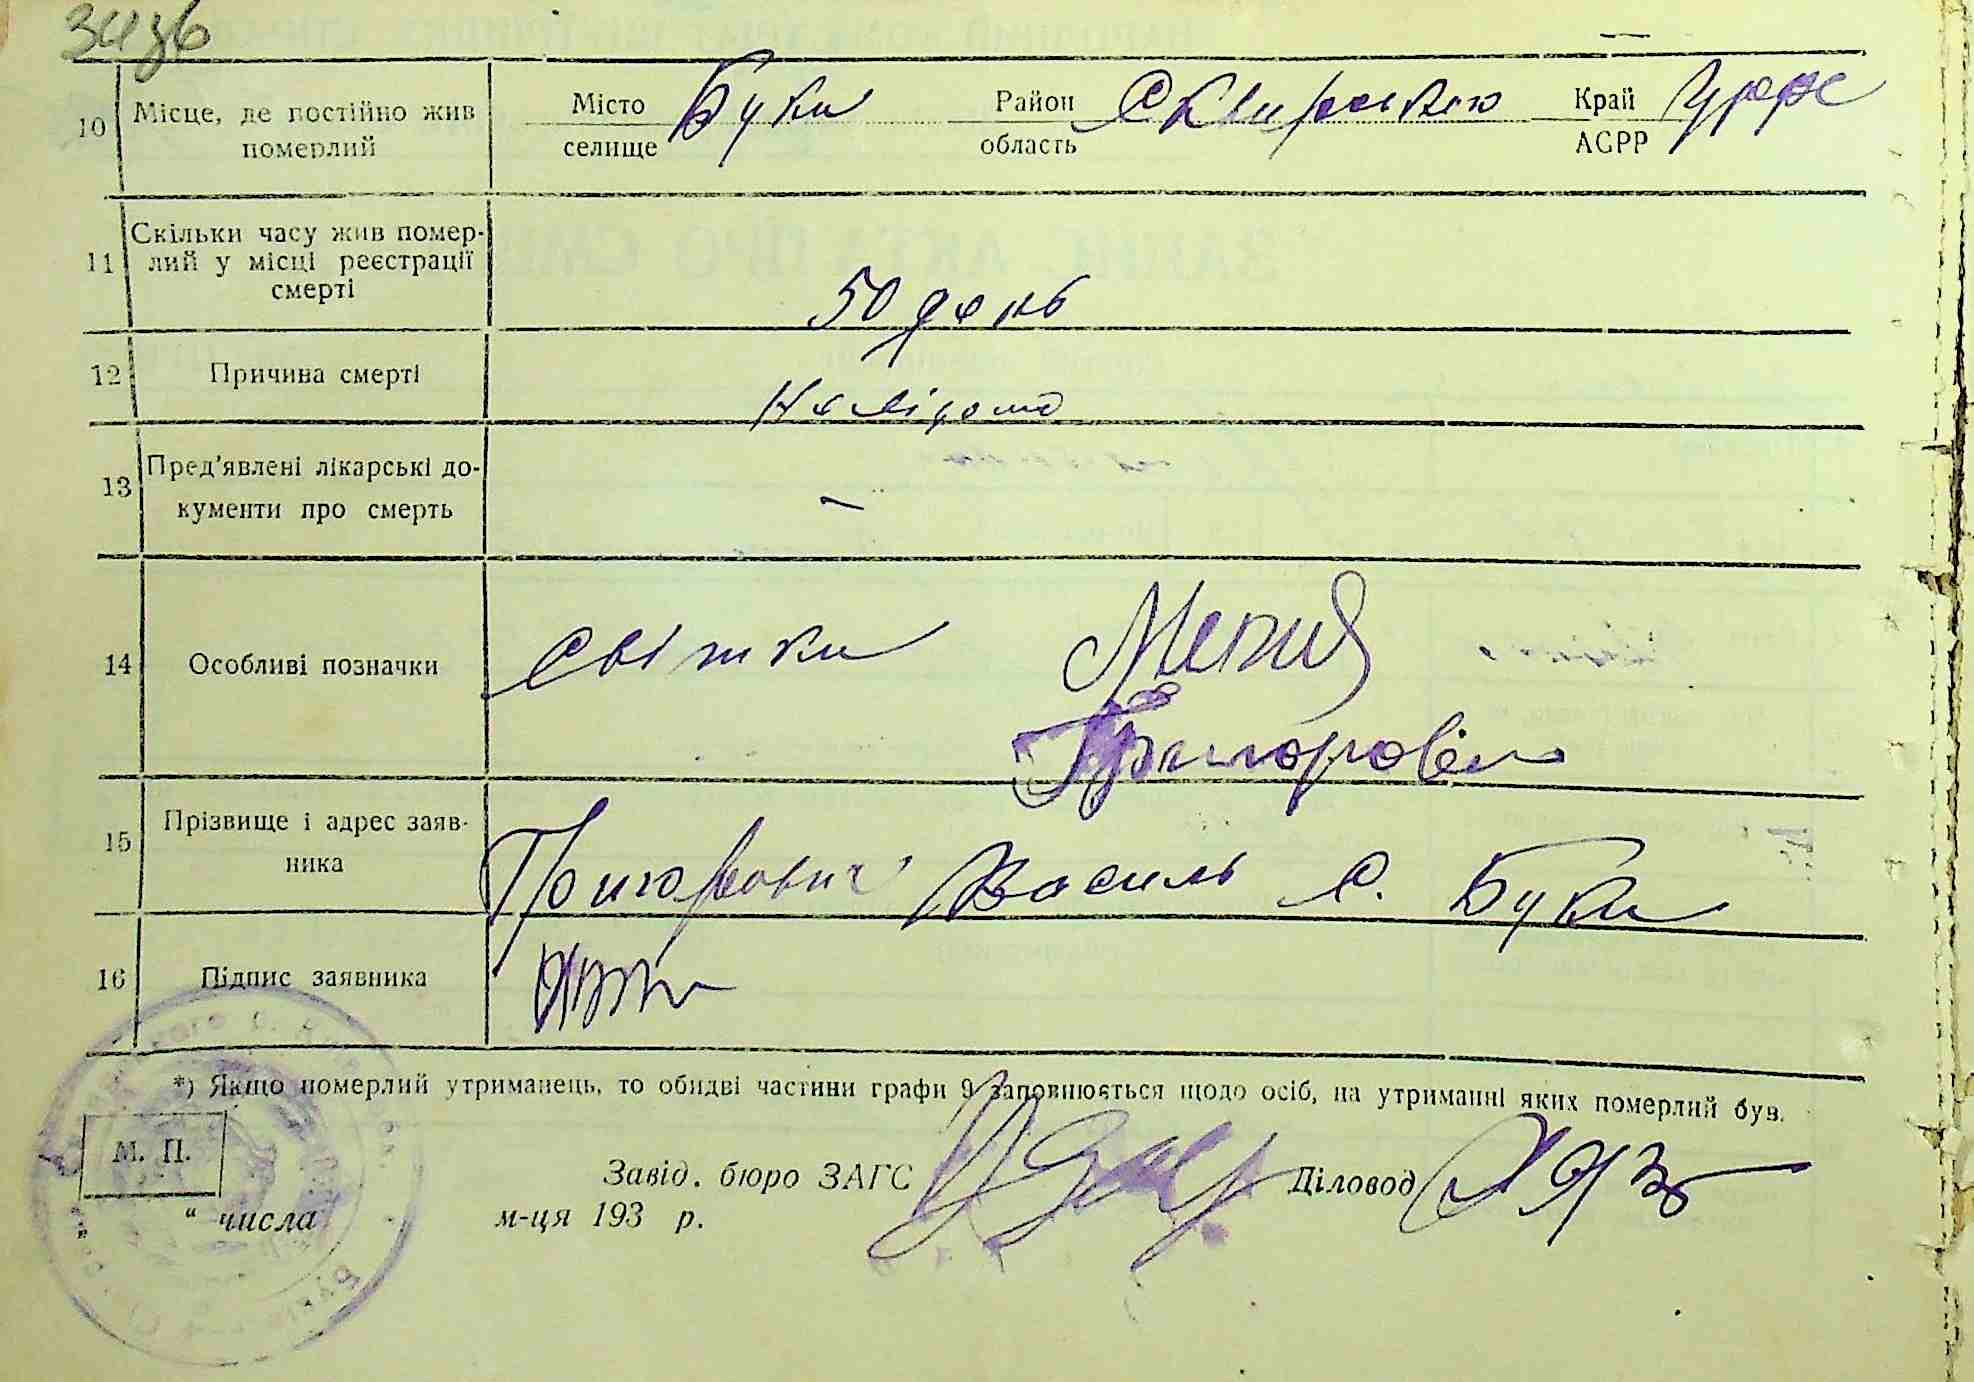 10 Місце, де постійно жив померлий Місто селище Буки Район область Сквирського Край АСРР УРСР
11 Скільки часу жив помер-
лий у місці реєстрації
смерті
50 день
12 Причина смерті
Невідома
13 Пред'явлені лікарські до-
кументи про смерть
–
14 Особливі позначки свідки
15 Прізвище і адрес заяв-
ника
Григорович Василь с. Буки
16 Підпис заявника
*) Якщо померлий утриманець, то обидві частини графи 9 заповнюється щодо осіб, на утриманні яких померлий був.
М. П.
Завід. бюро ЗАГС Діловод
„ “ числа м-ця 193 р.